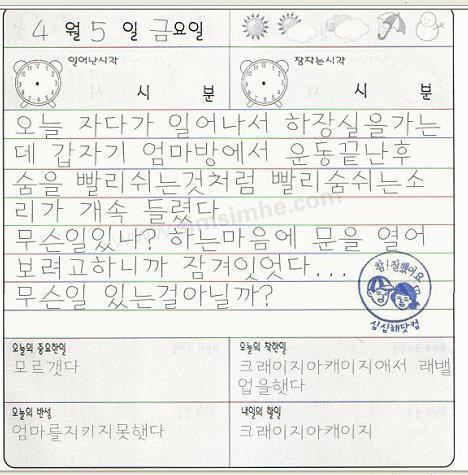 4 월 5 일 금요일
일어난시각
시 분
잠자는시각
시 분
오늘 자다가 일어나서 하장실을가는
데 갑자기 엄마방에서 운동끝난후
숨을 빨리쉬는것처럼 빨리숨쉬는소
리가 개속 들렸다
simsimhe.com
무슨일있나? 하는마음에 문을 열어
보려고하니까 잠겨잇엇다...
무슨일 있는걸아닐까?
참!잘했어요
심심해닷컴
오늘의 중요한일
모르갯다
오늘의 착한일
크래이지아캐이지애서 래밸
업을햇다
오늘의 반성
엄마를지키지못햇다
내일의 할일
크래이지아캐이지